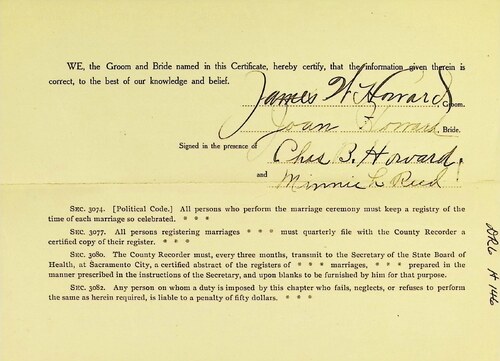 WE, the Groom and Bride named in this Certificate, hereby certify, that the information given therein is
correct, to the best of our knowledge and belief.
James W Howard, Groom.
Joan Howard, Bride.
Signed in the presence of
Chas B. Howard.
and
Minnie L Reed
SEC. 3074. [Political Code.] All persons who perform the marriage ceremony must keep a registry of
the time of each marriage so celebrated. * * *
SEC. 3077. All persons registering marriages * * * must quarterly file with the County Recorder a
certified copy of their register. * * *
SEC. 3080. The County Recorder must, every three months, transmit to the Secretary of the State Board of
Health, at Sacramento City, a certified abstract of the registers of * * * marriages, * * * prepared in the
manner prescribed in the instructions of the Secretary, and upon blanks to be furnished by him for that purpose.
SEC. 3082. Any person on whom a duty is imposed by this chapter who fails, neglects, or refuses to perform
the same as herein required, is liable to a penalty of fifty dollars. * * *